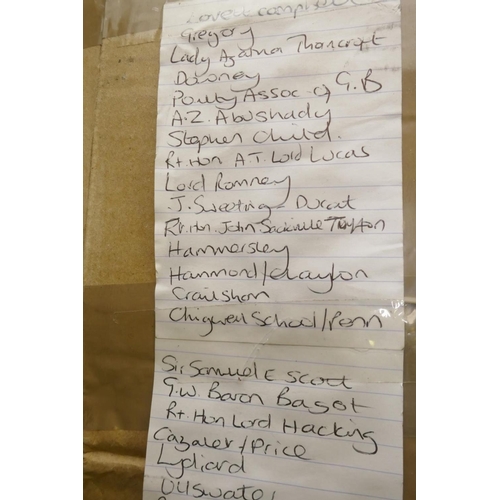 Gregory
Lady Thorncroft
Downey
Poulty Assoc of G.B
A.Z. Abushady
Stephen Child.
Rt. Hon A T. Lord Lucas
Lord Romney
J. Sweeting - Durant
Rt. Hon. John Sackville
Hammersley
Hammond / Clayton
Crailsham
Chigwell School / Penn
Sir Samuel E Scott
G.W. Baron Bagot
Rt. Hon Lord Hacking
Cazalet / Price
Lydiard